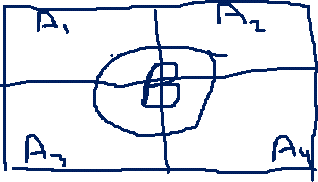 A₁ A₂
B
A₃ A₄